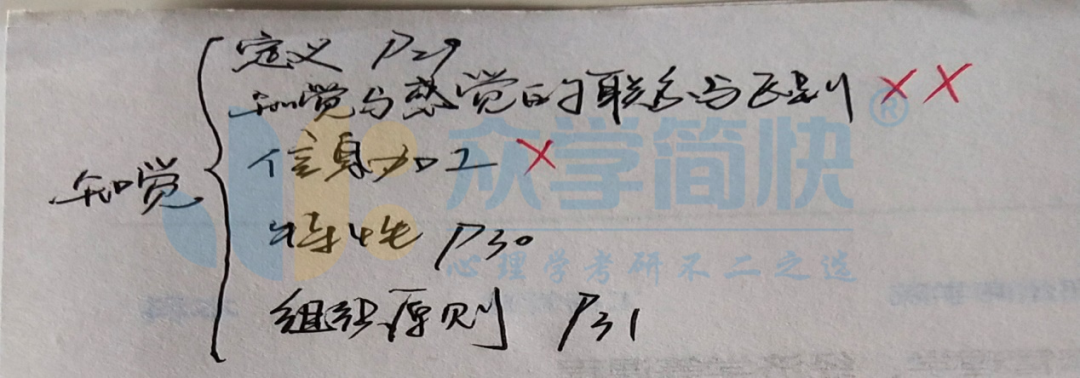 知觉
定义 P29
知觉与感觉的联系与区别 ××
信息加工 ×
特性 P30
组织原则 P31
众学简快®
心理学考研不二之选